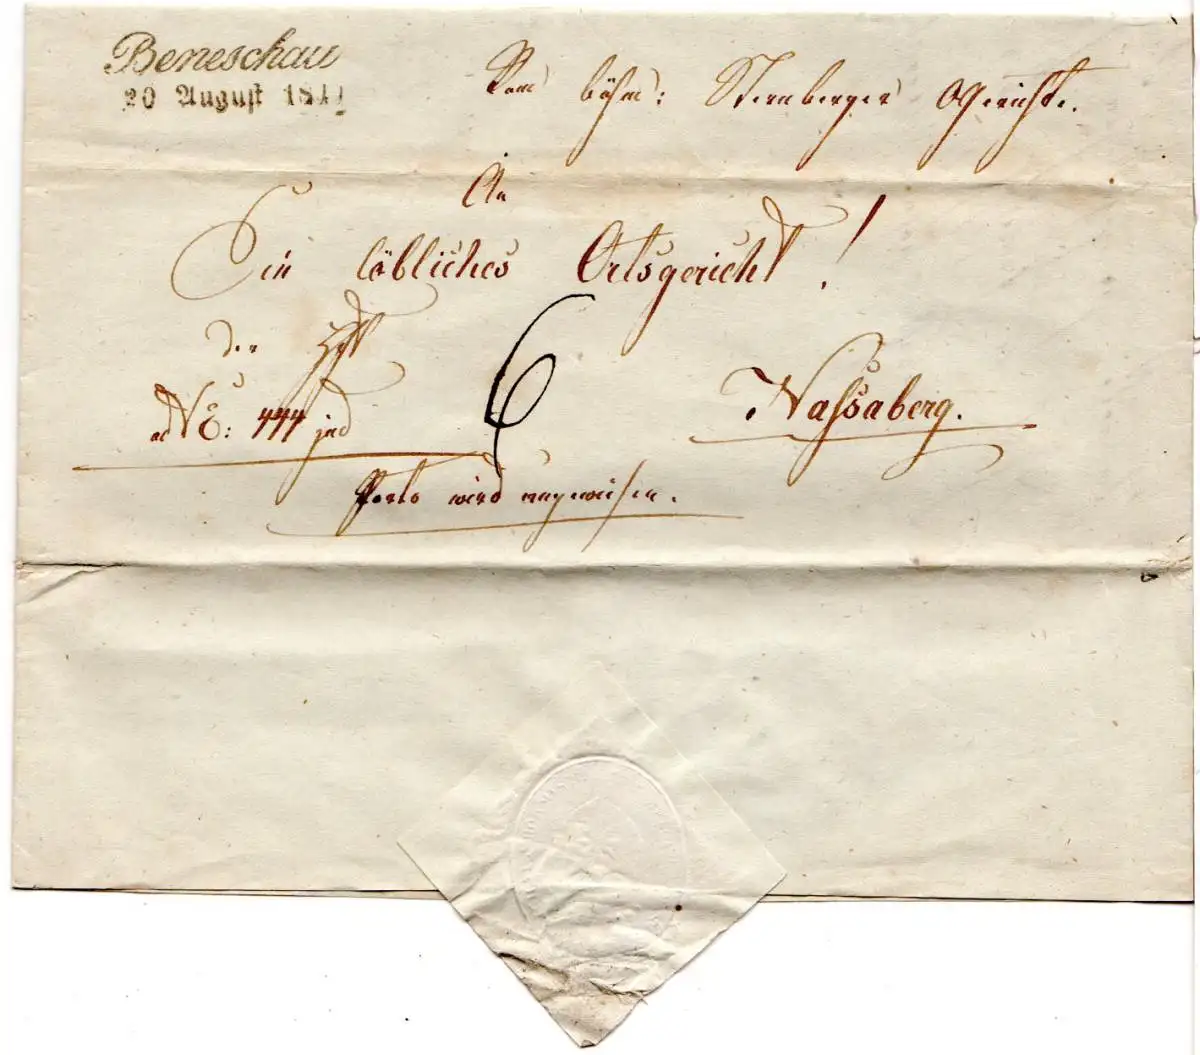 Beneschau
20 August 184
Vom böhm: Sternberger OGerichte.
An
Ein löbliches Ortsgericht!
der
NE: 444 jud
Nassaberg.
6
Porto wird angewiesen.